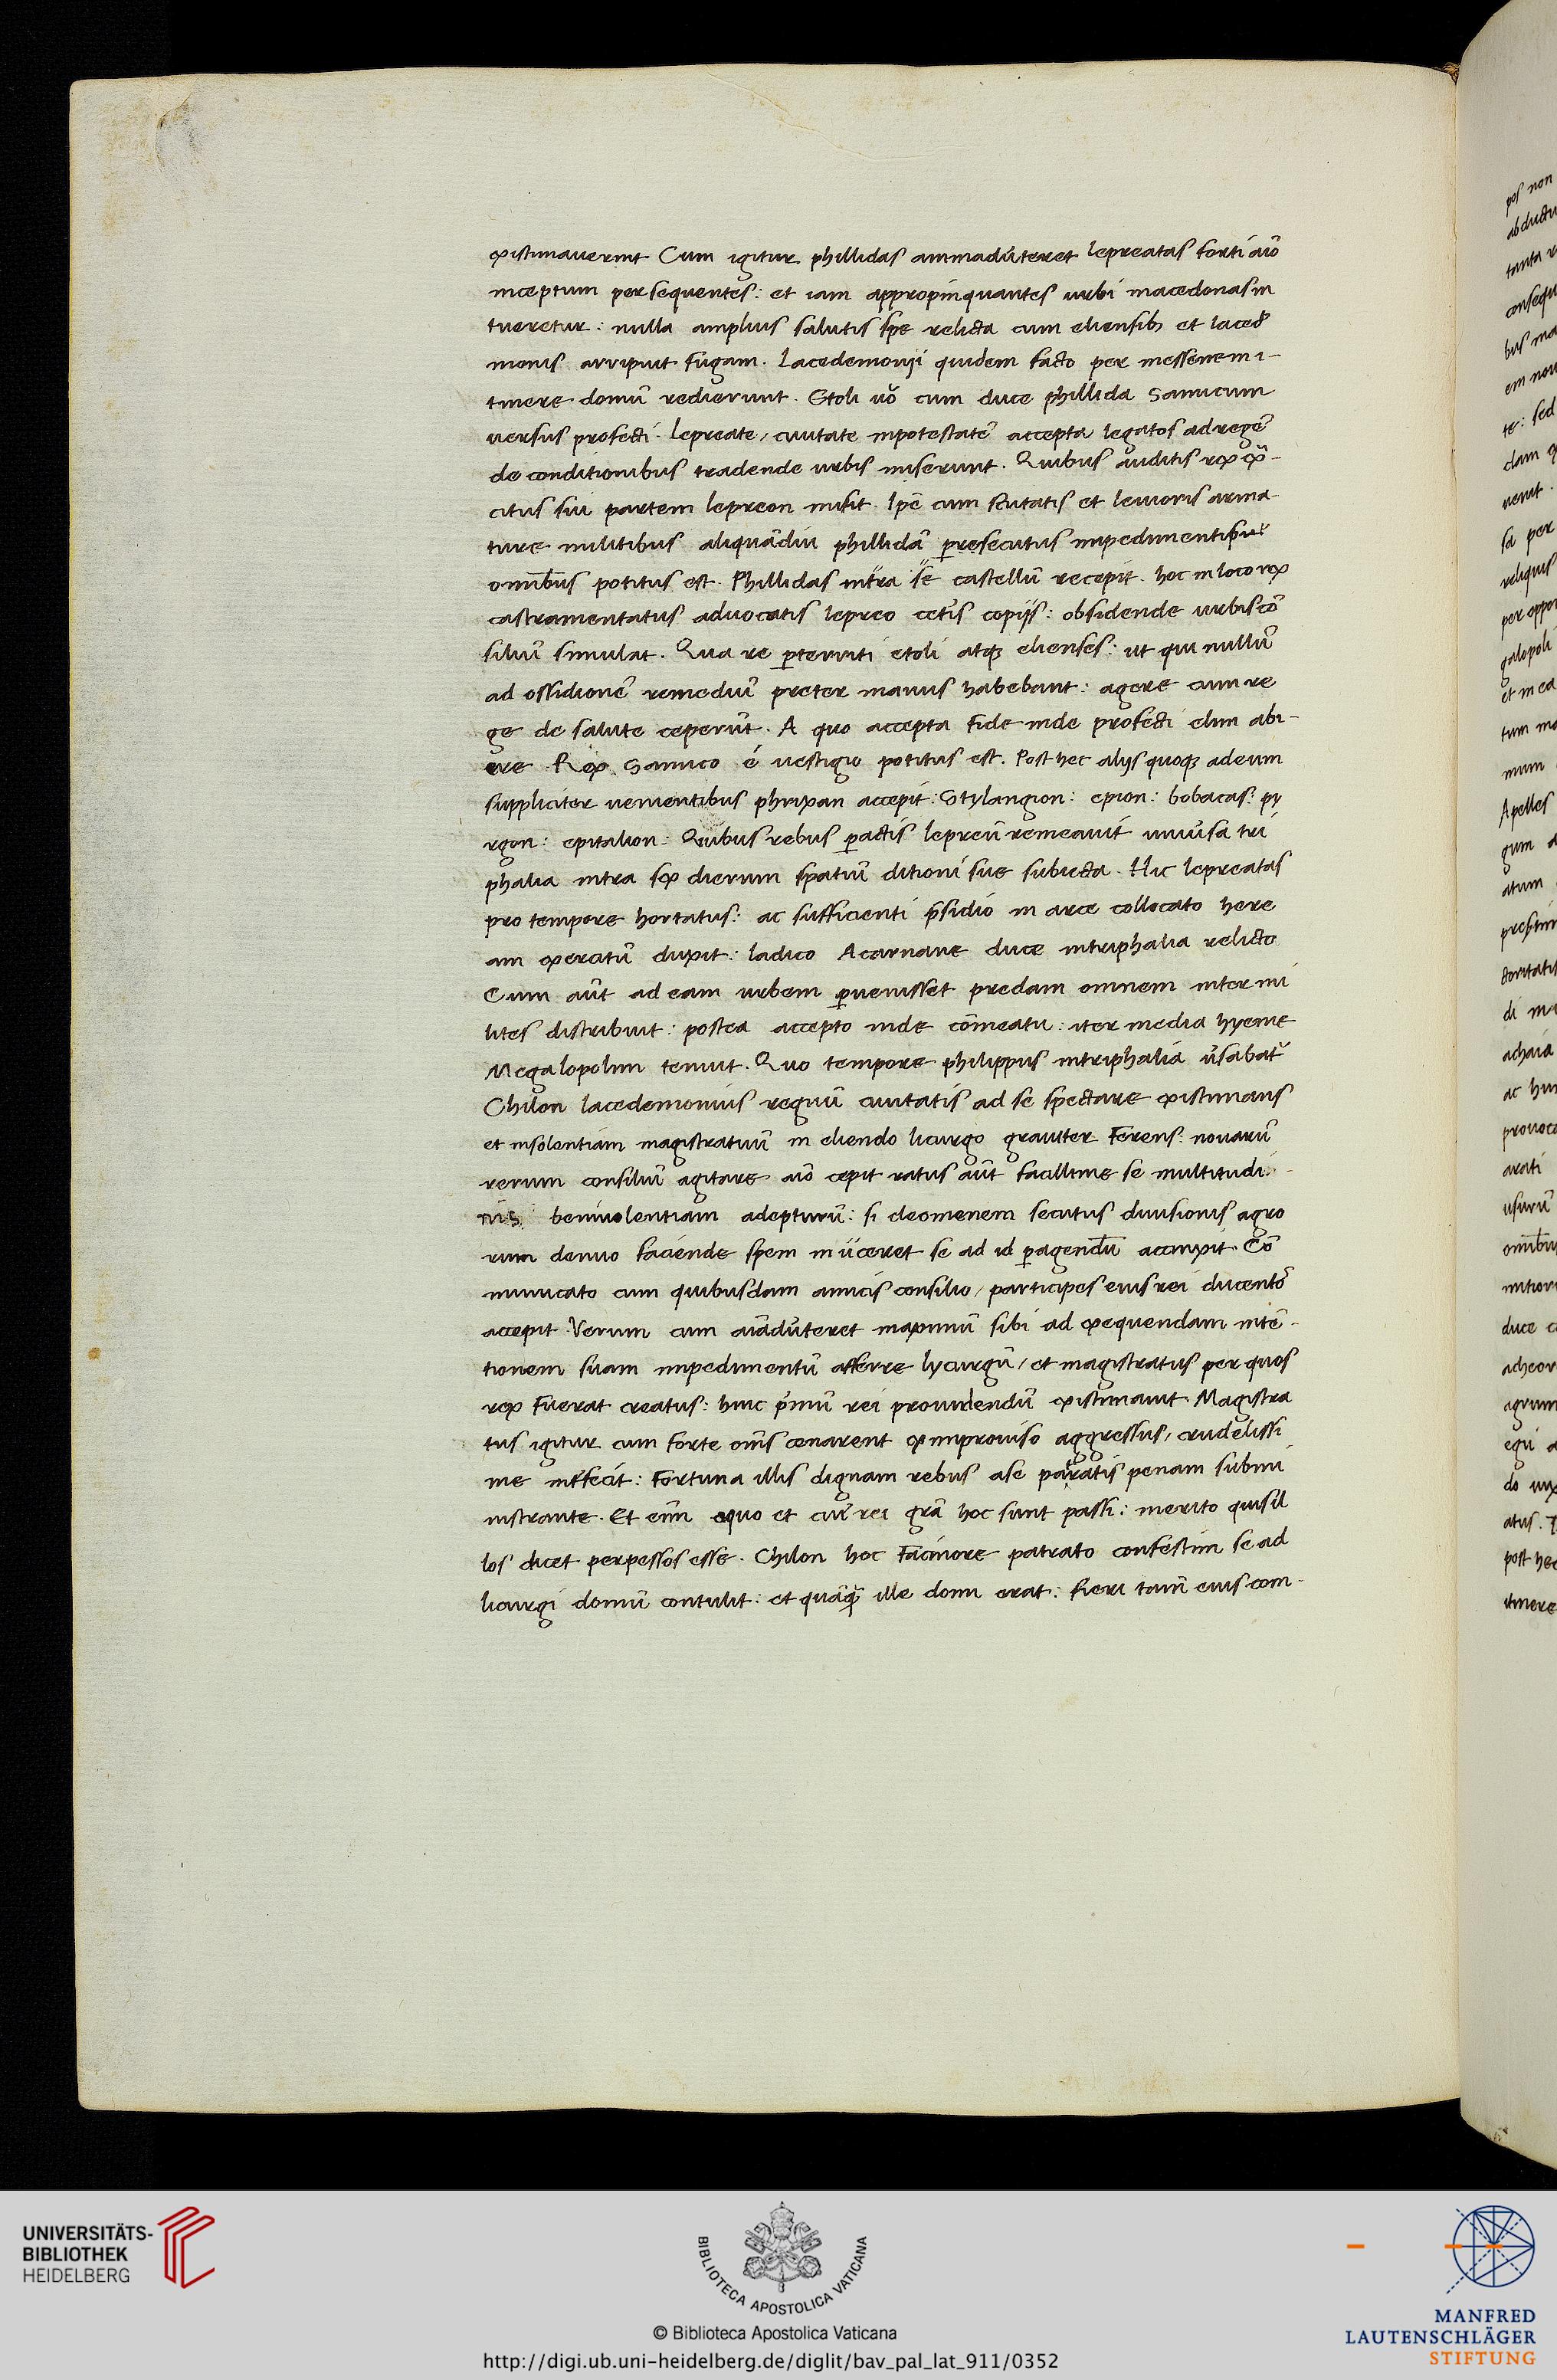 existimauerint Cum igitur phillidas animadūteret lepreatas forti aīo
inceptum persequentes: et iam appropinquantes urbi macedonas in
tueretur: nulla amplius salutis spe relicta cum eliensibꝫ et lacede
moniis arripuit fugam. Lacedemonij quidem facto per messenem i-
tinere domū redierunt. Etoli uō cum duce phillida Samicum
uersus profecti. Lepreate, ciuitate inpotestatē accepta legatos ad regē
de conditionibus tradende urbis miserunt. Quibus auditis rex exē-
citus sui partem lepreon misit. Ipē cum scutatis et leuioris arma-
ture militibus aliquādiu phillidā persecutus impedimentis eius
omībus potitus est. Phillidas intra se castellū recepit. hoc in loco rex
castramentatus aduocatis lepreo cet͛is copijs: obsidende urbis cō
siliū simulat. Qua re perterriti etoli atqꝫ elienses: ut qui nullū
ad ossidionē remediū preter manus habebant: agere cum re
ge de salute ceperūt. A quo accepta fide inde profecti elim abi-
ere Rex Samico é uestigio potitus est. Post hec alijs quoqꝫ ad eum
suppliciter uenientibus phrixan accepit: Stylangion: epion: bobacas: py
rgon: epitalion: Quibus rebus pactis lepreū remeauit uniūsa tri
phalia intra sex dierum spatiū ditioni sue subiecta. Hic lepreatas
pro tempore hortatus: ac sufficienti p̄sidio in arce collocato here
am exercitū duxit: ladico Acarnane duce intriphalia relicto
Cum aūt ad eam urbem peruenisset predam omnem inter mi
lites distribuit: postea accepto inde cōmeatu: iter media hyeme
Megalopolim tenuit. Quo tempore philippus intriphalia ūsabat͛
Chilon lacedemonius regnū ciuitatis ad se spectare existimans
et insolentiam magistratuū in eliendo licurgo grauiter ferens: nouarū
rerum consiliū agitare aīo cepit ratus aūt facillime se multitudi-
nis beniuolentiam adepturū: si cleomenem secutus diuisionis agro
rum denuo faciende spem iniiceret se ad id peragendū accinxit. Cō
municato cum quibusdam amicis consilio, participes eius rei ducentos
accepit. Verum cum aīadūteret maximū sibi ad exequendam intē-
tionem suam impedimentū afferre lycurgū, et magistratus per quos
rex fuerat creatus: huic p̄mū rei prouidendū existimauit. Magistra
tus igitur cum forte om̄s cenarent ex improuiso aggressus, crudelissi
me int͛fecit: fortuna illis dignam rebus a se paratis penam submi
nistrante. Et enī equo et cui͛ rei gr̄a hoc sunt passi: merito quis il
los dicet perpessos esse. Chilon hoc facinore patrato confestim se ad
licurgi domū contulit: et quāqꝫ ille domi erat: fieri tam̄ eius com-
pos non
abductu
tanta r
consequ
bus ma
em nou
te: sed
dam
uenit.
sa per
reliquis
per oppor
galopoli
et in ea
tum mo
mum
Apelles
gum a
atum
prestin
ctoritatis
di ma
achaia
ac hu
prouoca
arati
usurū
omību
nitior
duce c
acheor
agrum
egri a
do uix
atus.
post hec
itinere
UNIVERSITÄTS-
BIBLIOTHEK
HEIDELBERG
BIBLIOTECA APOSTOLICA VATICANA
© Biblioteca Apostolica Vaticana
http://digi.ub.uni-heidelberg.de/diglit/bav_pal_lat_911/0352
MANFRED
LAUTENSCHLÄGER
STIFTUNG